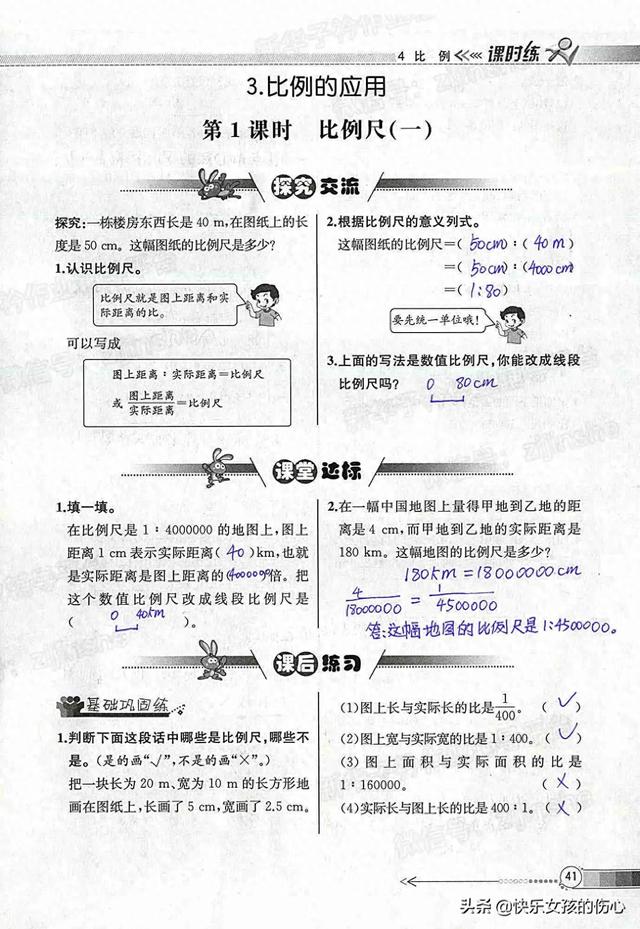 4 比 例 课时练
3.比例的应用
第1课时 比例尺(一)
探究 交流
探究:一栋楼房东西长是 40 m,在图纸上的长
度是 50 cm。这幅图纸的比例尺是多少?
1.认识比例尺。
比例尺就是图上距离和实
际距离的比。
可以写成
图上距离∶实际距离=比例尺
或 图上距离/实际距离=比例尺
2.根据比例尺的意义列式。
这幅图纸的比例尺=( 50cm )∶( 40m )
=( 50cm )∶( 4000cm )
=( 1:80 )
要先统一单位哦!
3.上面的写法是数值比例尺,你能改成线段
比例尺吗? 0 80cm
课堂 达标
1.填一填。
在比例尺是 1∶4000000 的地图上,图上
距离 1 cm 表示实际距离( 40 )km,也就
是实际距离是图上距离的(4000000)倍。把
这个数值比例尺改成线段比例尺是
( 0 40km )。
2.在一幅中国地图上量得甲地到乙地的距
离是 4 cm,而甲地到乙地的实际距离是
180 km。这幅地图的比例尺是多少?
180km=18000000cm
4/18000000 = 1/4500000
答:这幅地图的比例尺是1:4500000。
课后 练习
基础巩固练
1.判断下面这段话中哪些是比例尺,哪些不
是。(是的画“√”,不是的画“×”。)
把一块长为 20 m、宽为 10 m 的长方形地
画在图纸上,长画了 5 cm,宽画了 2.5 cm。
(1)图上长与实际长的比是1/400。 ( ✓ )
(2)图上宽与实际宽的比是 1∶400。 ( ✓ )
(3)图上面积与实际面积的比是
1∶160000。 ( × )
(4)实际长与图上长的比是 400∶1。 ( × )
41
头条 @快乐女孩的伤心